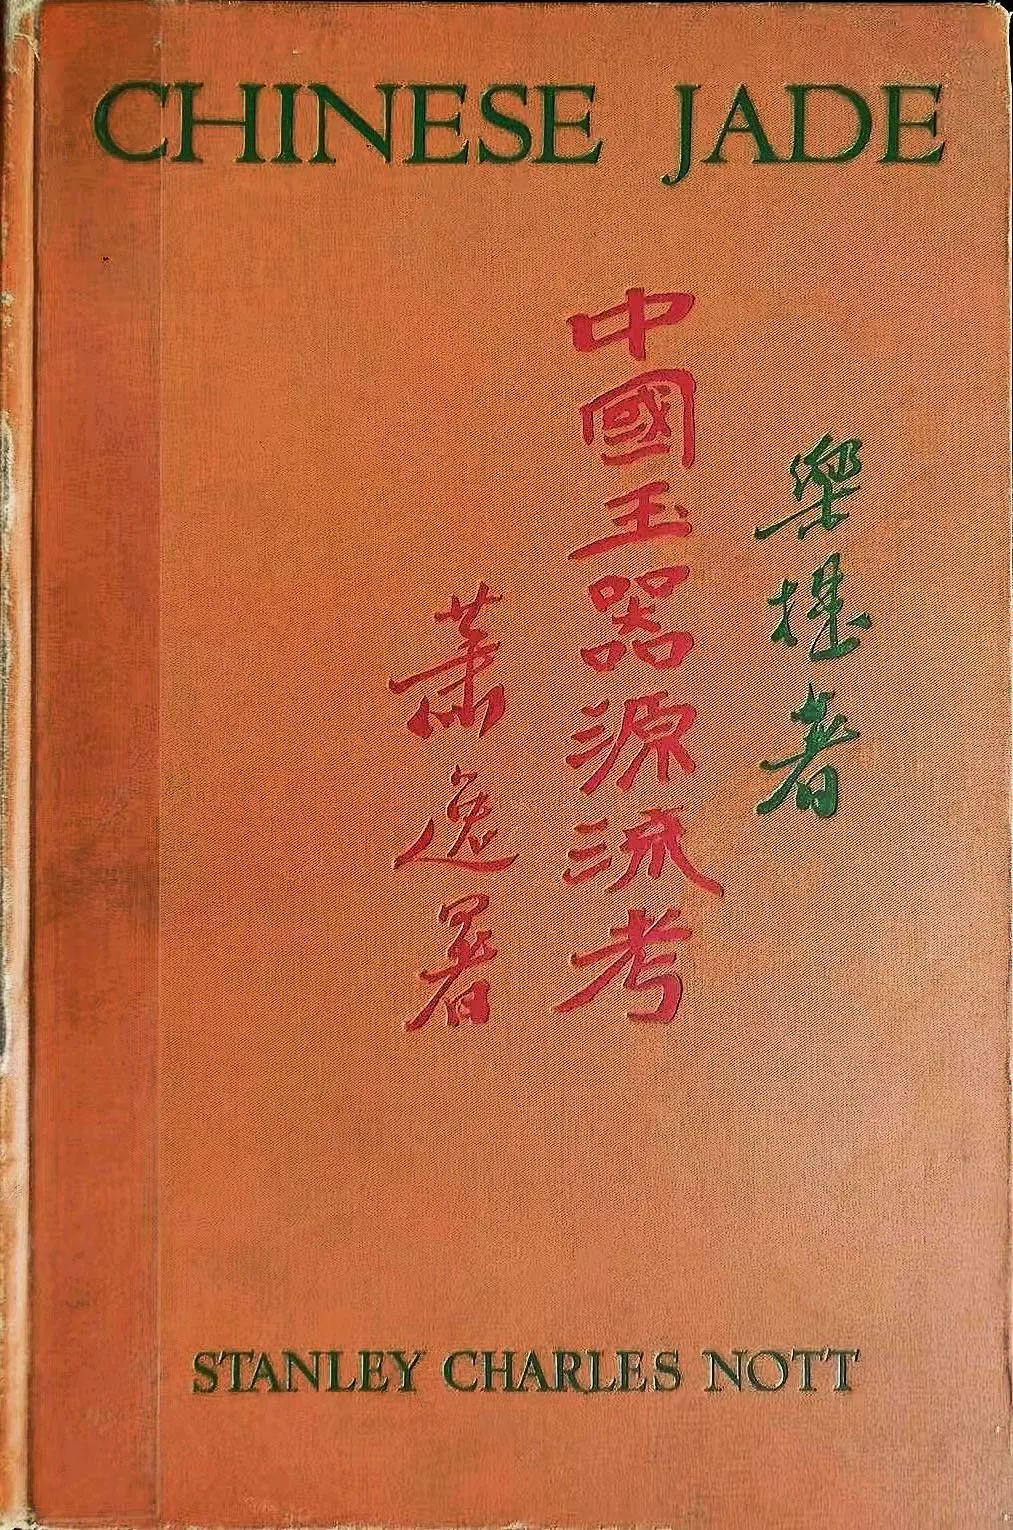 CHINESE JADE
中國玉器源流考
蕭逸署
STANLEY CHARLES NOTT